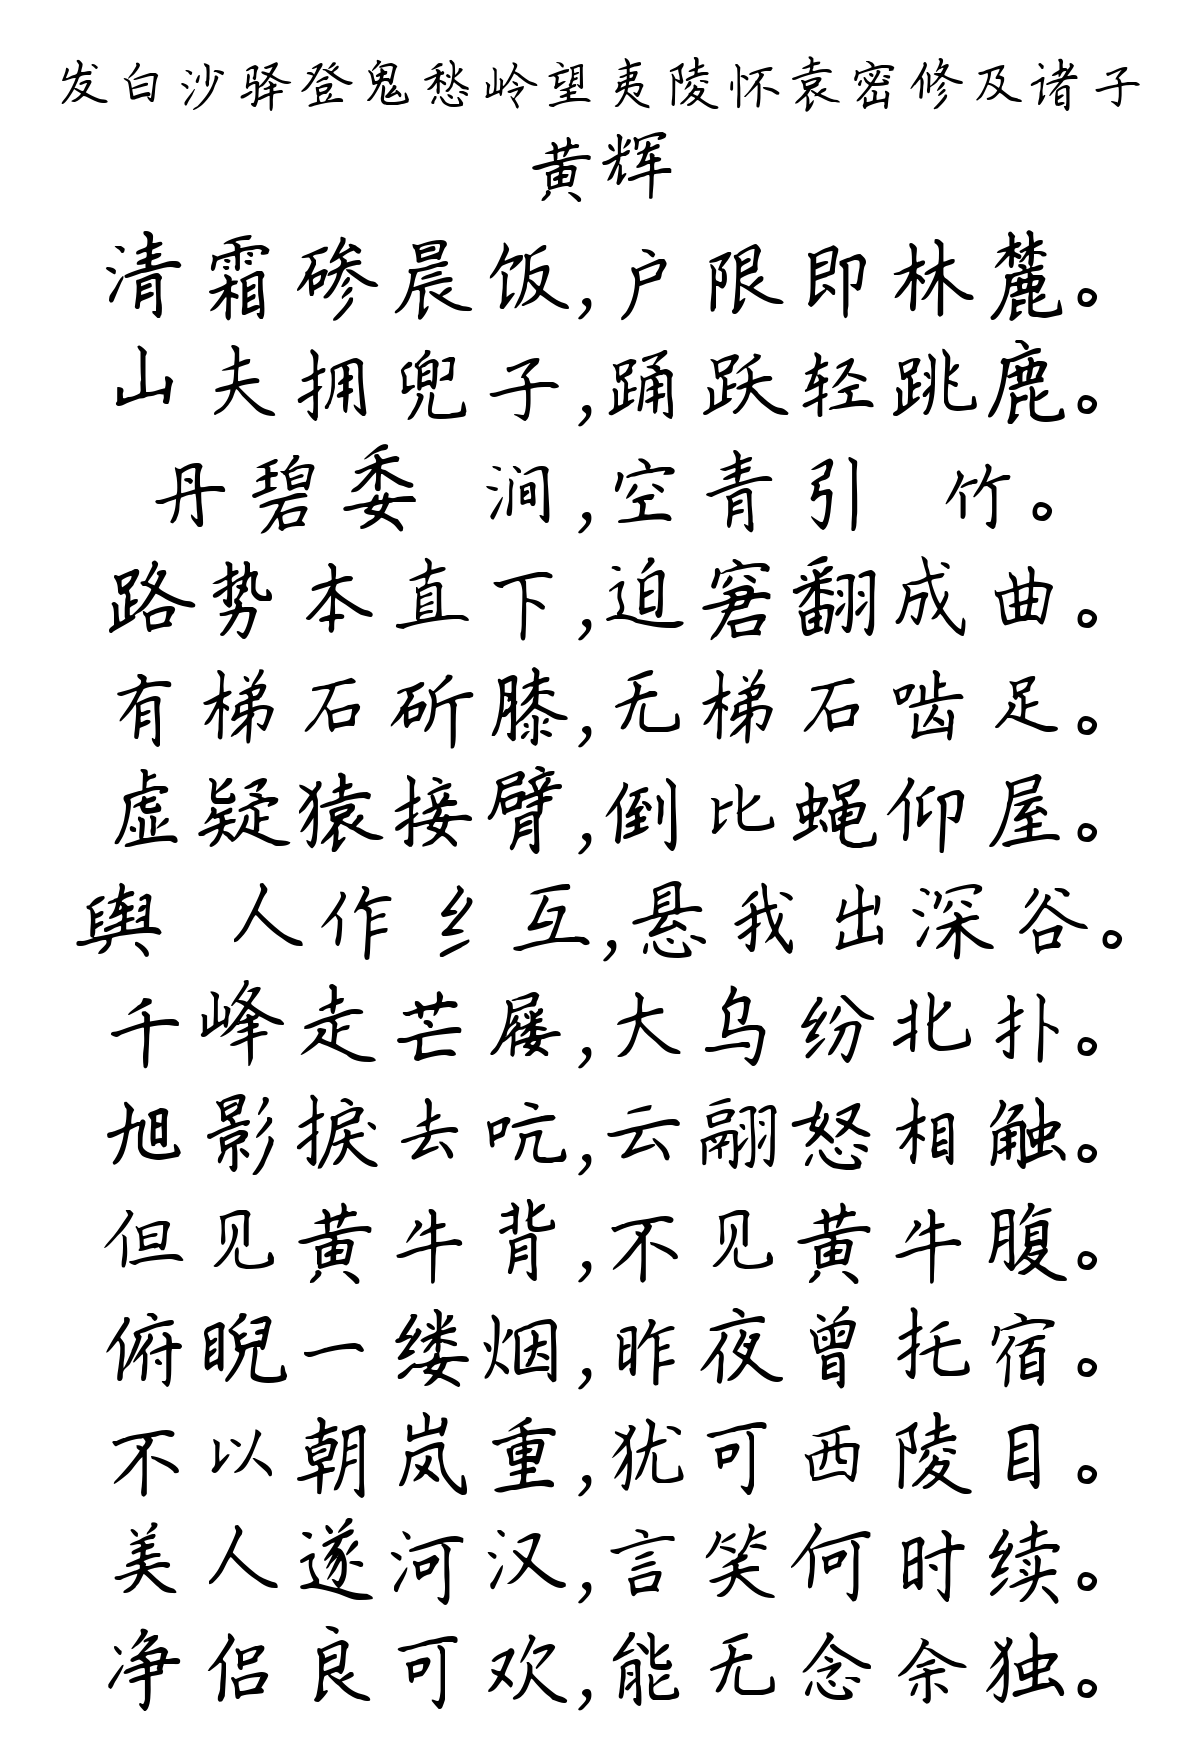 发白沙驿登鬼愁岭望夷陵怀袁密修及诸子
黄辉
清霜碜晨饭,户限即林麓。
山夫拥兜子,踊跃轻跳鹿。
丹碧委 涧,空青引 竹。
路势本直下,迫窘翻成曲。
有梯石斫膝,无梯石啮足。
虚疑猿接臂,倒比蝇仰屋。
舆 人作纟互,悬我出深谷。
千峰走芒屦,大乌纷北扑。
旭影捩去吭,云翮怒相触。
但见黄牛背,不见黄牛腹。
俯睨一缕烟,昨夜曾托宿。
不以朝岚重,犹可西陵目。
美人邃河汉,言笑何时续。
净侣良可欢,能无念余独。